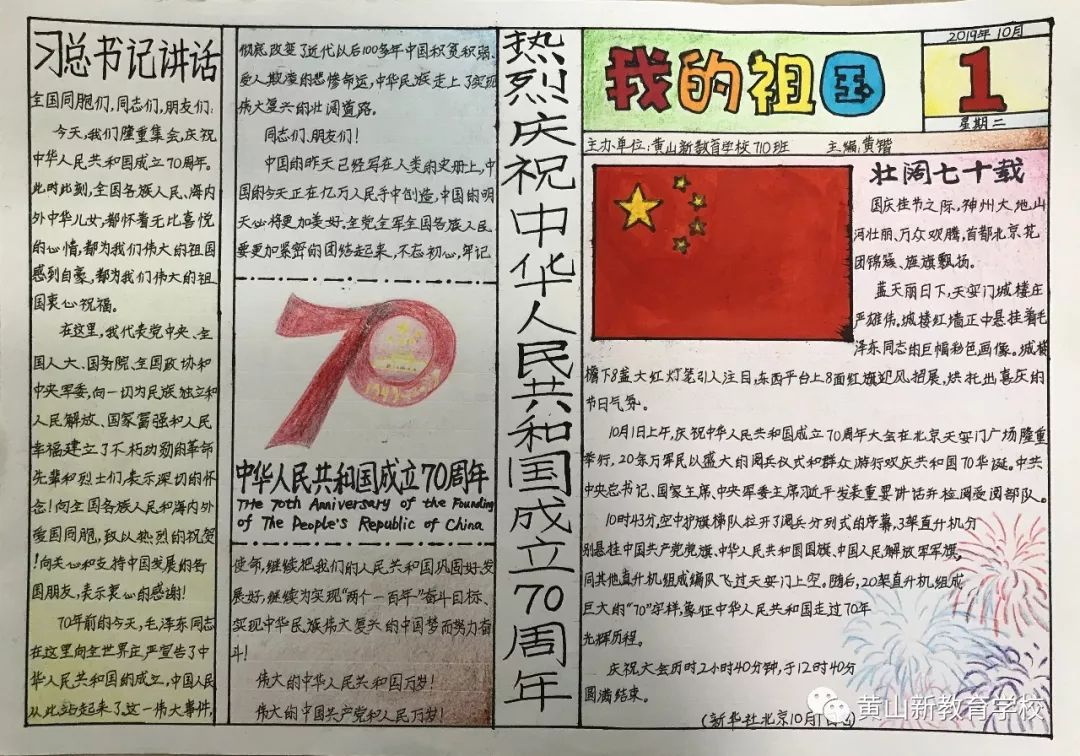 习总书记讲话
全国同胞们,同志们,朋友们:
今天,我们隆重集会,庆祝
中华人民共和国成立70周年。
此时此刻,全国各族人民、海内
外中华儿女,都怀着无比喜悦
的心情,都为我们伟大的祖国
感到自豪,都为我们伟大的祖
国衷心祝福。
在这里,我代表党中央、全
国人大、国务院、全国政协和
中央军委,向一切为民族独立和
人民解放、国家富强和人民
幸福建立了不朽功勋的革命
先辈和烈士们,表示深切的怀
念!向全国各族人民和海内外
爱国同胞,致以热烈的祝贺
!向关心和支持中国发展的各
国朋友,表示衷心的感谢!
70年前的今天,毛泽东同志
在这里向全世界庄严宣告了中
华人民共和国的成立,中国人民
从此站起来了。这一伟大事件,
彻底改变了近代以后100多年中国积贫积弱、
受人欺凌的悲惨命运,中华民族走上了实现
伟大复兴的壮阔道路。
同志们、朋友们!
中国的昨天已经写在人类的史册上,中
国的今天正在亿万人民手中创造,中国的明
天必将更加美好。全党全军全国各族人民
要更加紧密的团结起来,不忘初心,牢记
70
1949
中华人民共和国成立70周年
THe 70th Anniversary of the Founding
of The People's Republic of China
使命,继续把我们的人民共和国巩固好、发
展好,继续为实现“两个一百年”奋斗目标、
实现中华民族伟大复兴的中国梦而努力奋
斗!
伟大的中华人民共和国万岁!
伟大的中国共产党和人民万岁!
热烈庆祝中华人民共和国成立70周年
我的祖国
2019年10月
1
星期二
主办单位:黄山新教育学校710班 主编:黄锴
壮阔七十载
国庆佳节之际,神州大地山
河壮丽、万众欢腾,首都北京花
团锦簇、旌旗飘扬。
蓝天丽日下,天安门城楼庄
严雄伟。城楼红墙正中悬挂着毛
泽东同志的巨幅彩色画像。城楼
檐下8盏大红灯笼引人注目,东西平台上8面红旗迎风招展,烘托出喜庆的
节日气氛。
10月1日上午,庆祝中华人民共和国成立70周年大会在北京天安门广场隆重
举行,20余万军民以盛大的阅兵仪式和群众游行欢庆共和国70华诞。中共
中央总书记、国家主席、中央军委主席习近平发表重要讲话并检阅受阅部队。
10时43分,空中护旗梯队拉开了阅兵分列式的序幕,3架直升机分
别悬挂中国共产党党旗、中华人民共和国国旗、中国人民解放军军旗,
同其他直升机组成编队飞过天安门上空。随后,20架直升机组成
巨大的“70”字样,象征中华人民共和国走过70年
光辉历程。
庆祝大会历时2小时40分钟,于12时40分
圆满结束。
(新华社北京10月1日电)
黄山新教育学校